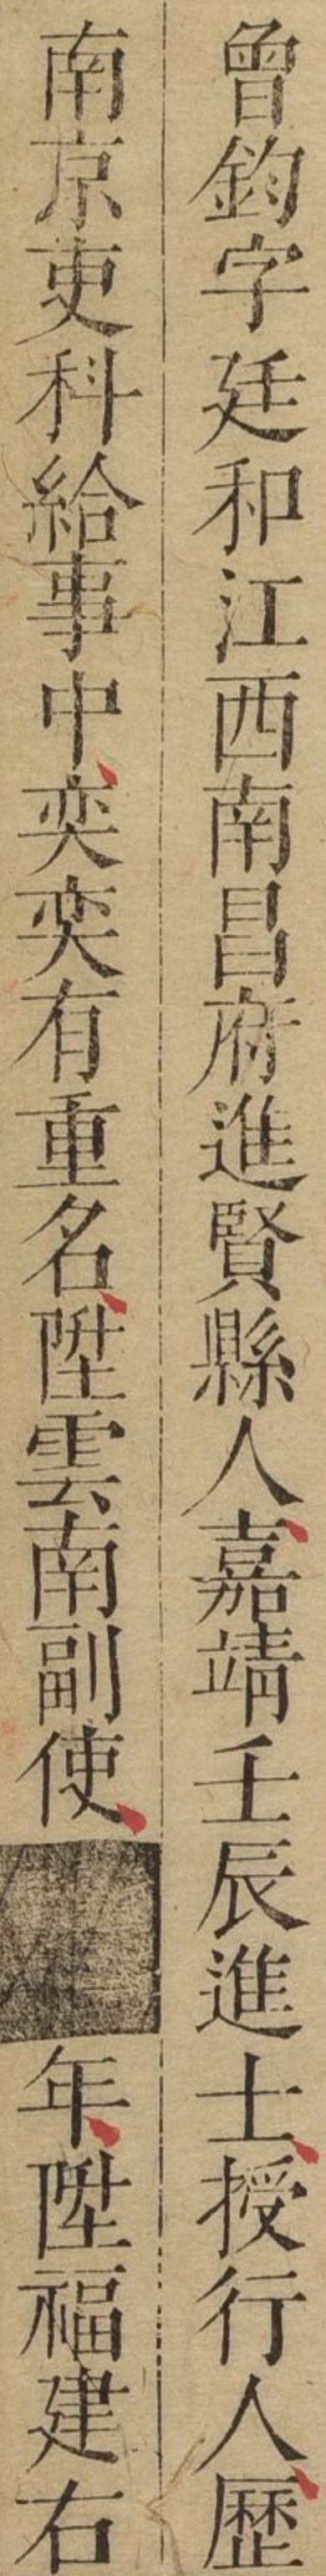 曾鈞字廷和江西南昌府進賢縣人嘉靖壬辰進士授行人歷
南京吏科給事中奕奕有重名陞雲南副使■■年陞福建右